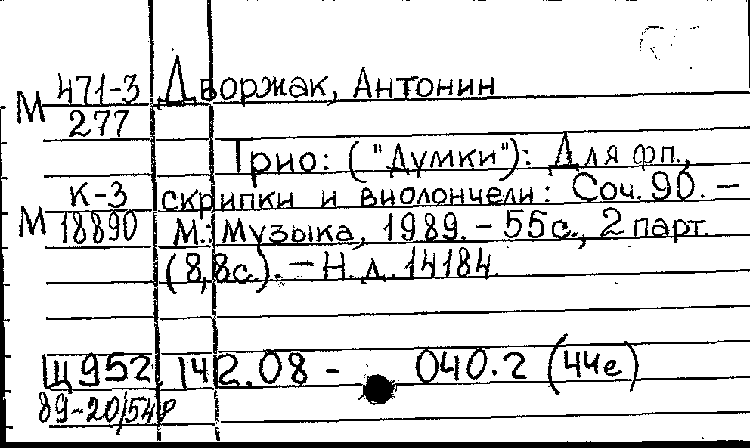 М 471-3 Дворжак, Антонин
277
Трио: ("Думки"): Для фп.,
К-3 скрипки и виолончели: Соч. 90. –
М 18890 М.: Музыка, 1989. – 55с., 2 парт.
(8,8с.). – Н. д. 14184
Щ952.142.08 - 040.2 (44е)
89-20/54